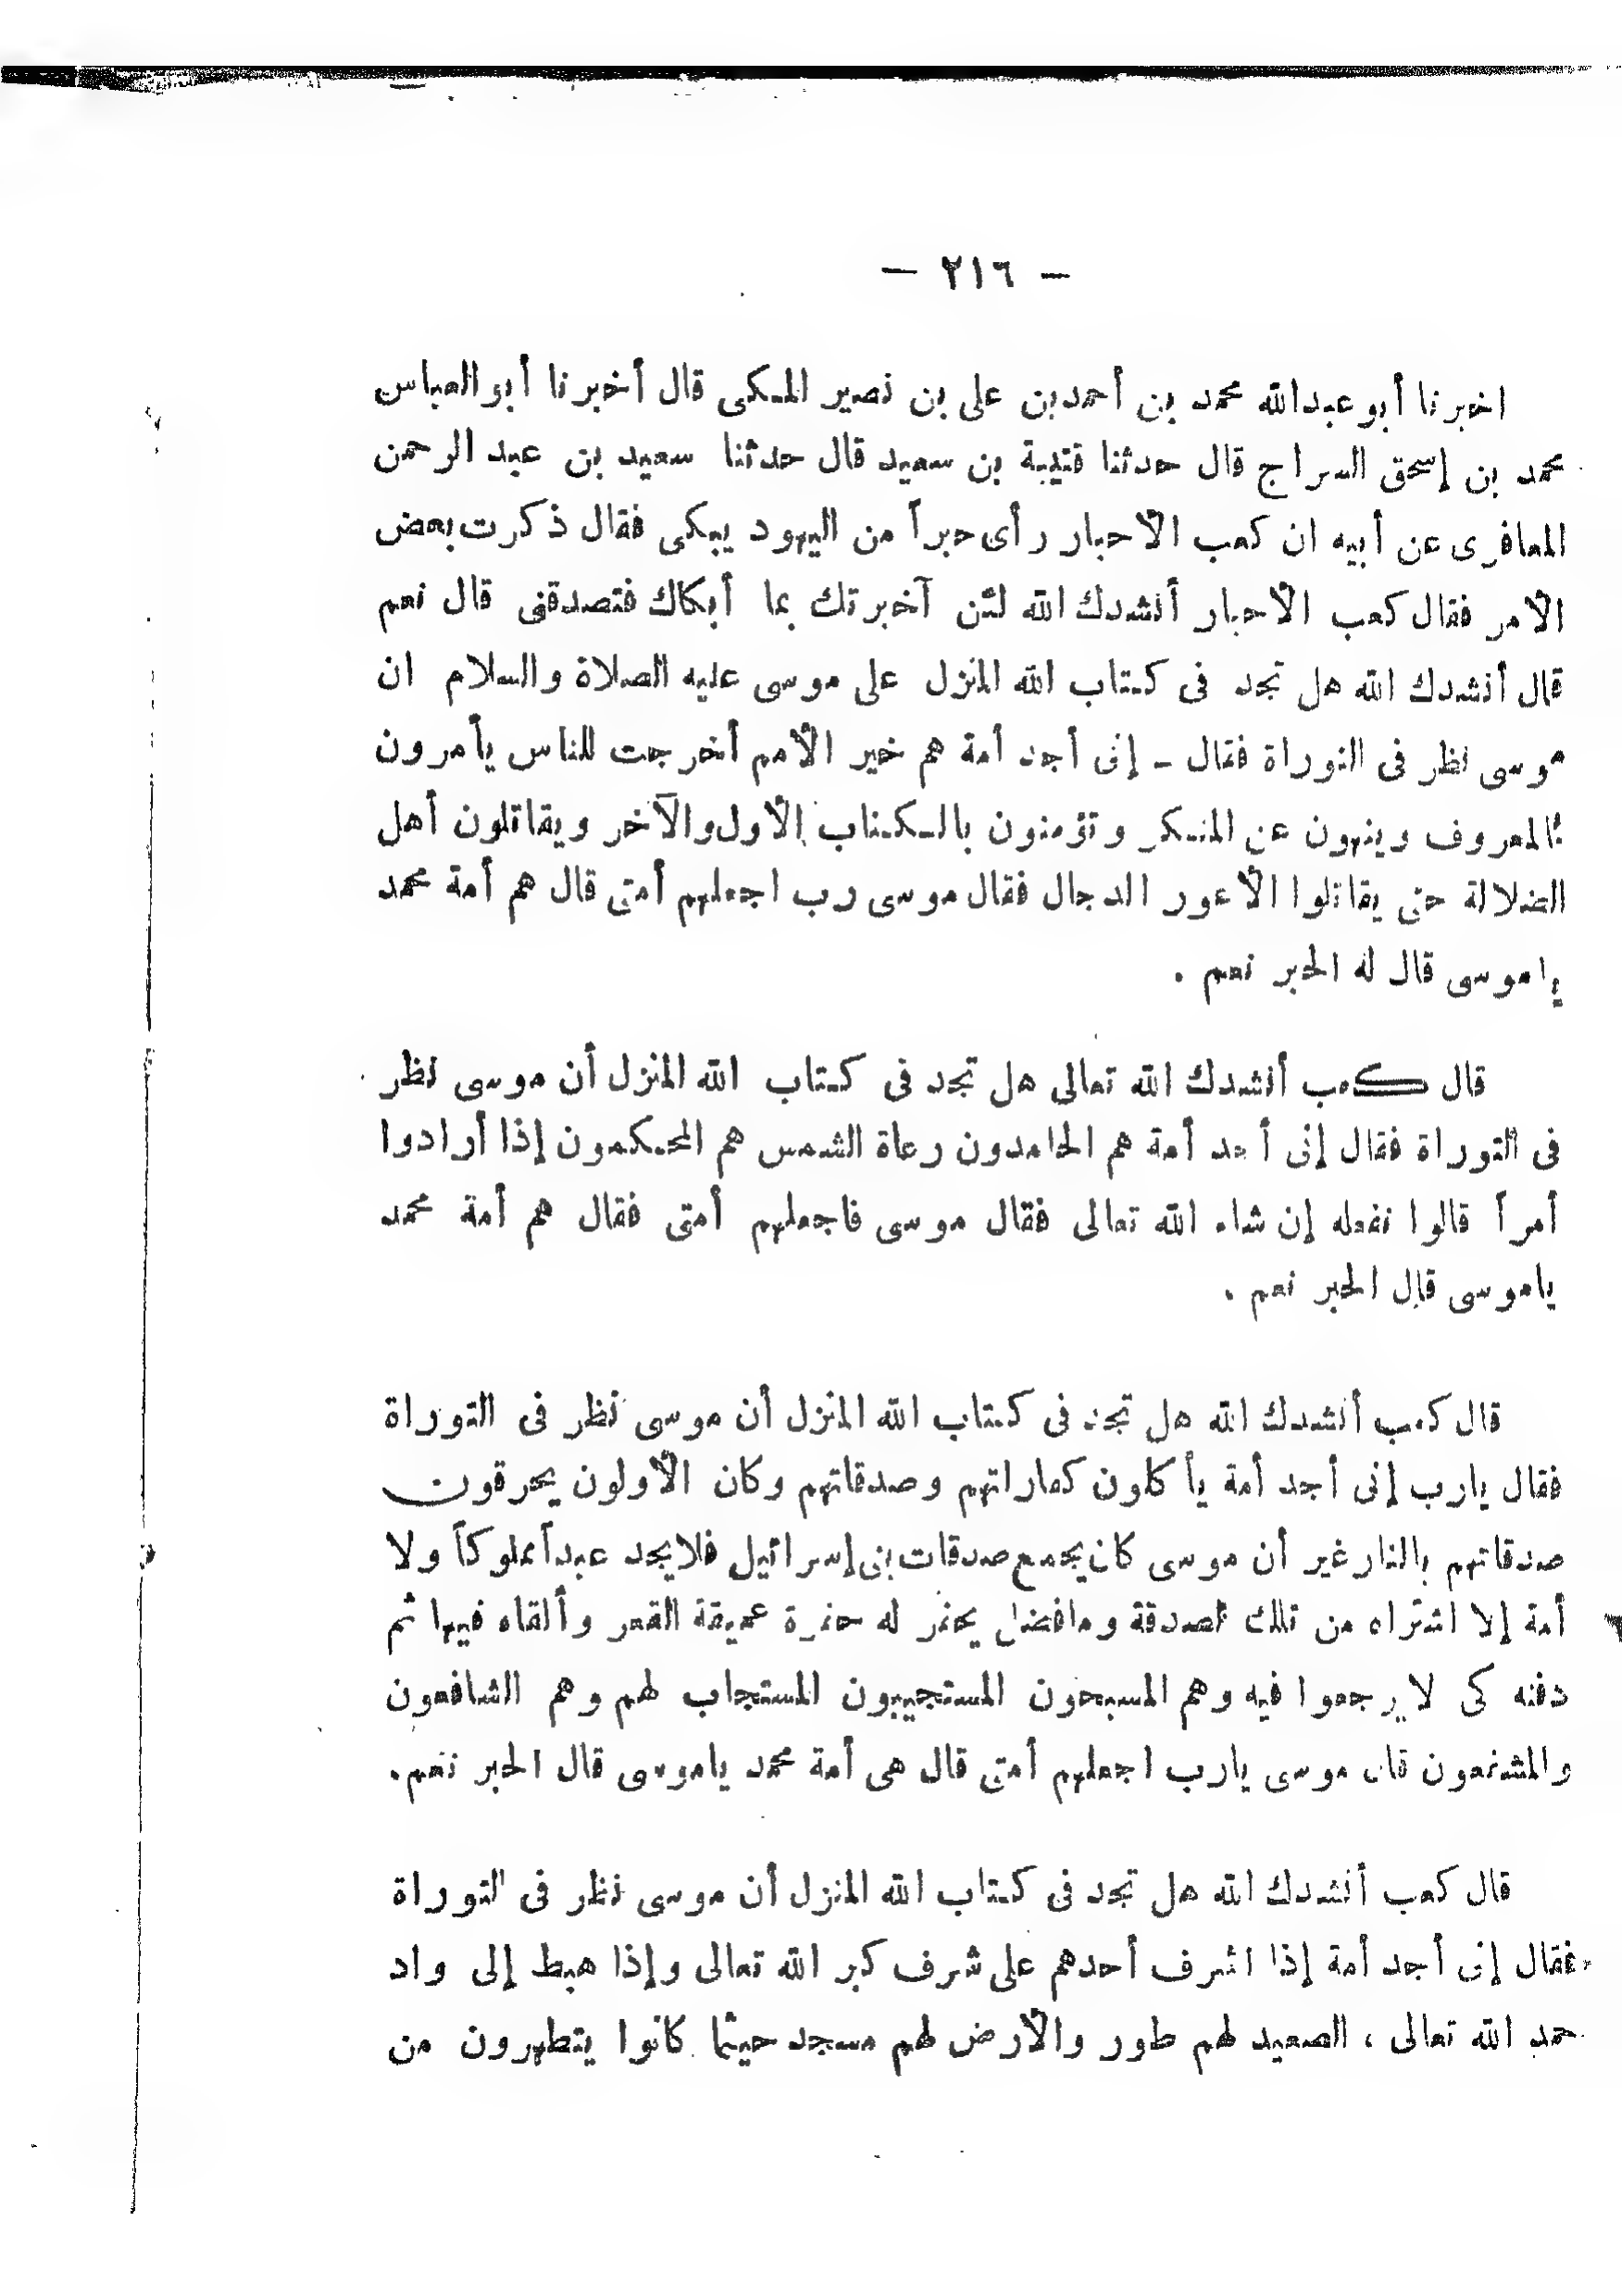 — ٢١٦ —
اخبرنا أبو عبدالله محمد بن أحمد بن على بن نصير المكى قال أخبرنا أبو العباس
محمد بن إسحق السراج قال حدثنا قتيبة بن سعيد قال حدثنا سعيد بن عبد الرحمن
المعافرى عن أبيه ان كعب الأحبار رأى حبراً من اليهود يبكى فقال ذكرت بعض
الأمر فقال كعب الأحبار أنشدك الله لئن آخبرتك بما أبكاك فتصدقنى قال نعم
قال أنشدك الله هل تجد فى كتاب الله المنزل على موسى عليه الصلاة والسلام ان
موسى نظر فى التوراة فقال - إنى أجد أمة هم خير الأمم أخرجت للناس يأمرون
بالمعروف وينهون عن المنكر وتؤمنون بالكتاب الأول والآخر ويقاتلون أهل
الضلالة حتى يقاتلوا الأعور الدجال فقال موسى رب اجعلهم أمتى قال هم أمة محمد
ياموسى قال له الحبر نعم .
قال كعب أنشدك الله تعالى هل تجد فى كتاب الله المنزل أن موسى نظر
فى التوراة فقال إنى أجد أمة هم الحامدون رعاة الشمس هم المحكمون إذا أرادوا
أمراً قالوا نفعله إن شاء الله تعالى فقال موسى فاجعلهم أمتى فقال هم أمة محمد
ياموسى قال الحبر نعم .
قال كعب أنشدك الله هل تجد فى كتاب الله المنزل أن موسى نظر فى التوراة
فقال يارب إنى أجد أمة يأكلون كفاراتهم وصدقاتهم وكان الأولون يحرقون
صدقاتهم بالنار غير أن موسى كان يجمع صدقات بنى إسرائيل فلا يجد عبداً مملوكاً ولا
أمة إلا اشتراه من تلك الصدقة ومافضل يحفر له حفرة عميقة القعر وألقاه فيها ثم
دفنه كى لا يرجعوا فيه وهم المسبحون المستجيبون المستجاب لهم وهم الشافعون
والمشفعون قال موسى يارب اجعلهم أمتى قال هى أمة محمد ياموسى قال الحبر نعم .
قال كعب أنشدك الله هل تجد فى كتاب الله المنزل أن موسى نظر فى التوراة
فقال إنى أجد أمة إذا اشرف أحدهم على شرف كبر الله تعالى وإذا هبط إلى واد
حمد الله تعالى ، الصعيد لهم طور والأرض لهم مسجد حيثما كانوا يتطهرون من